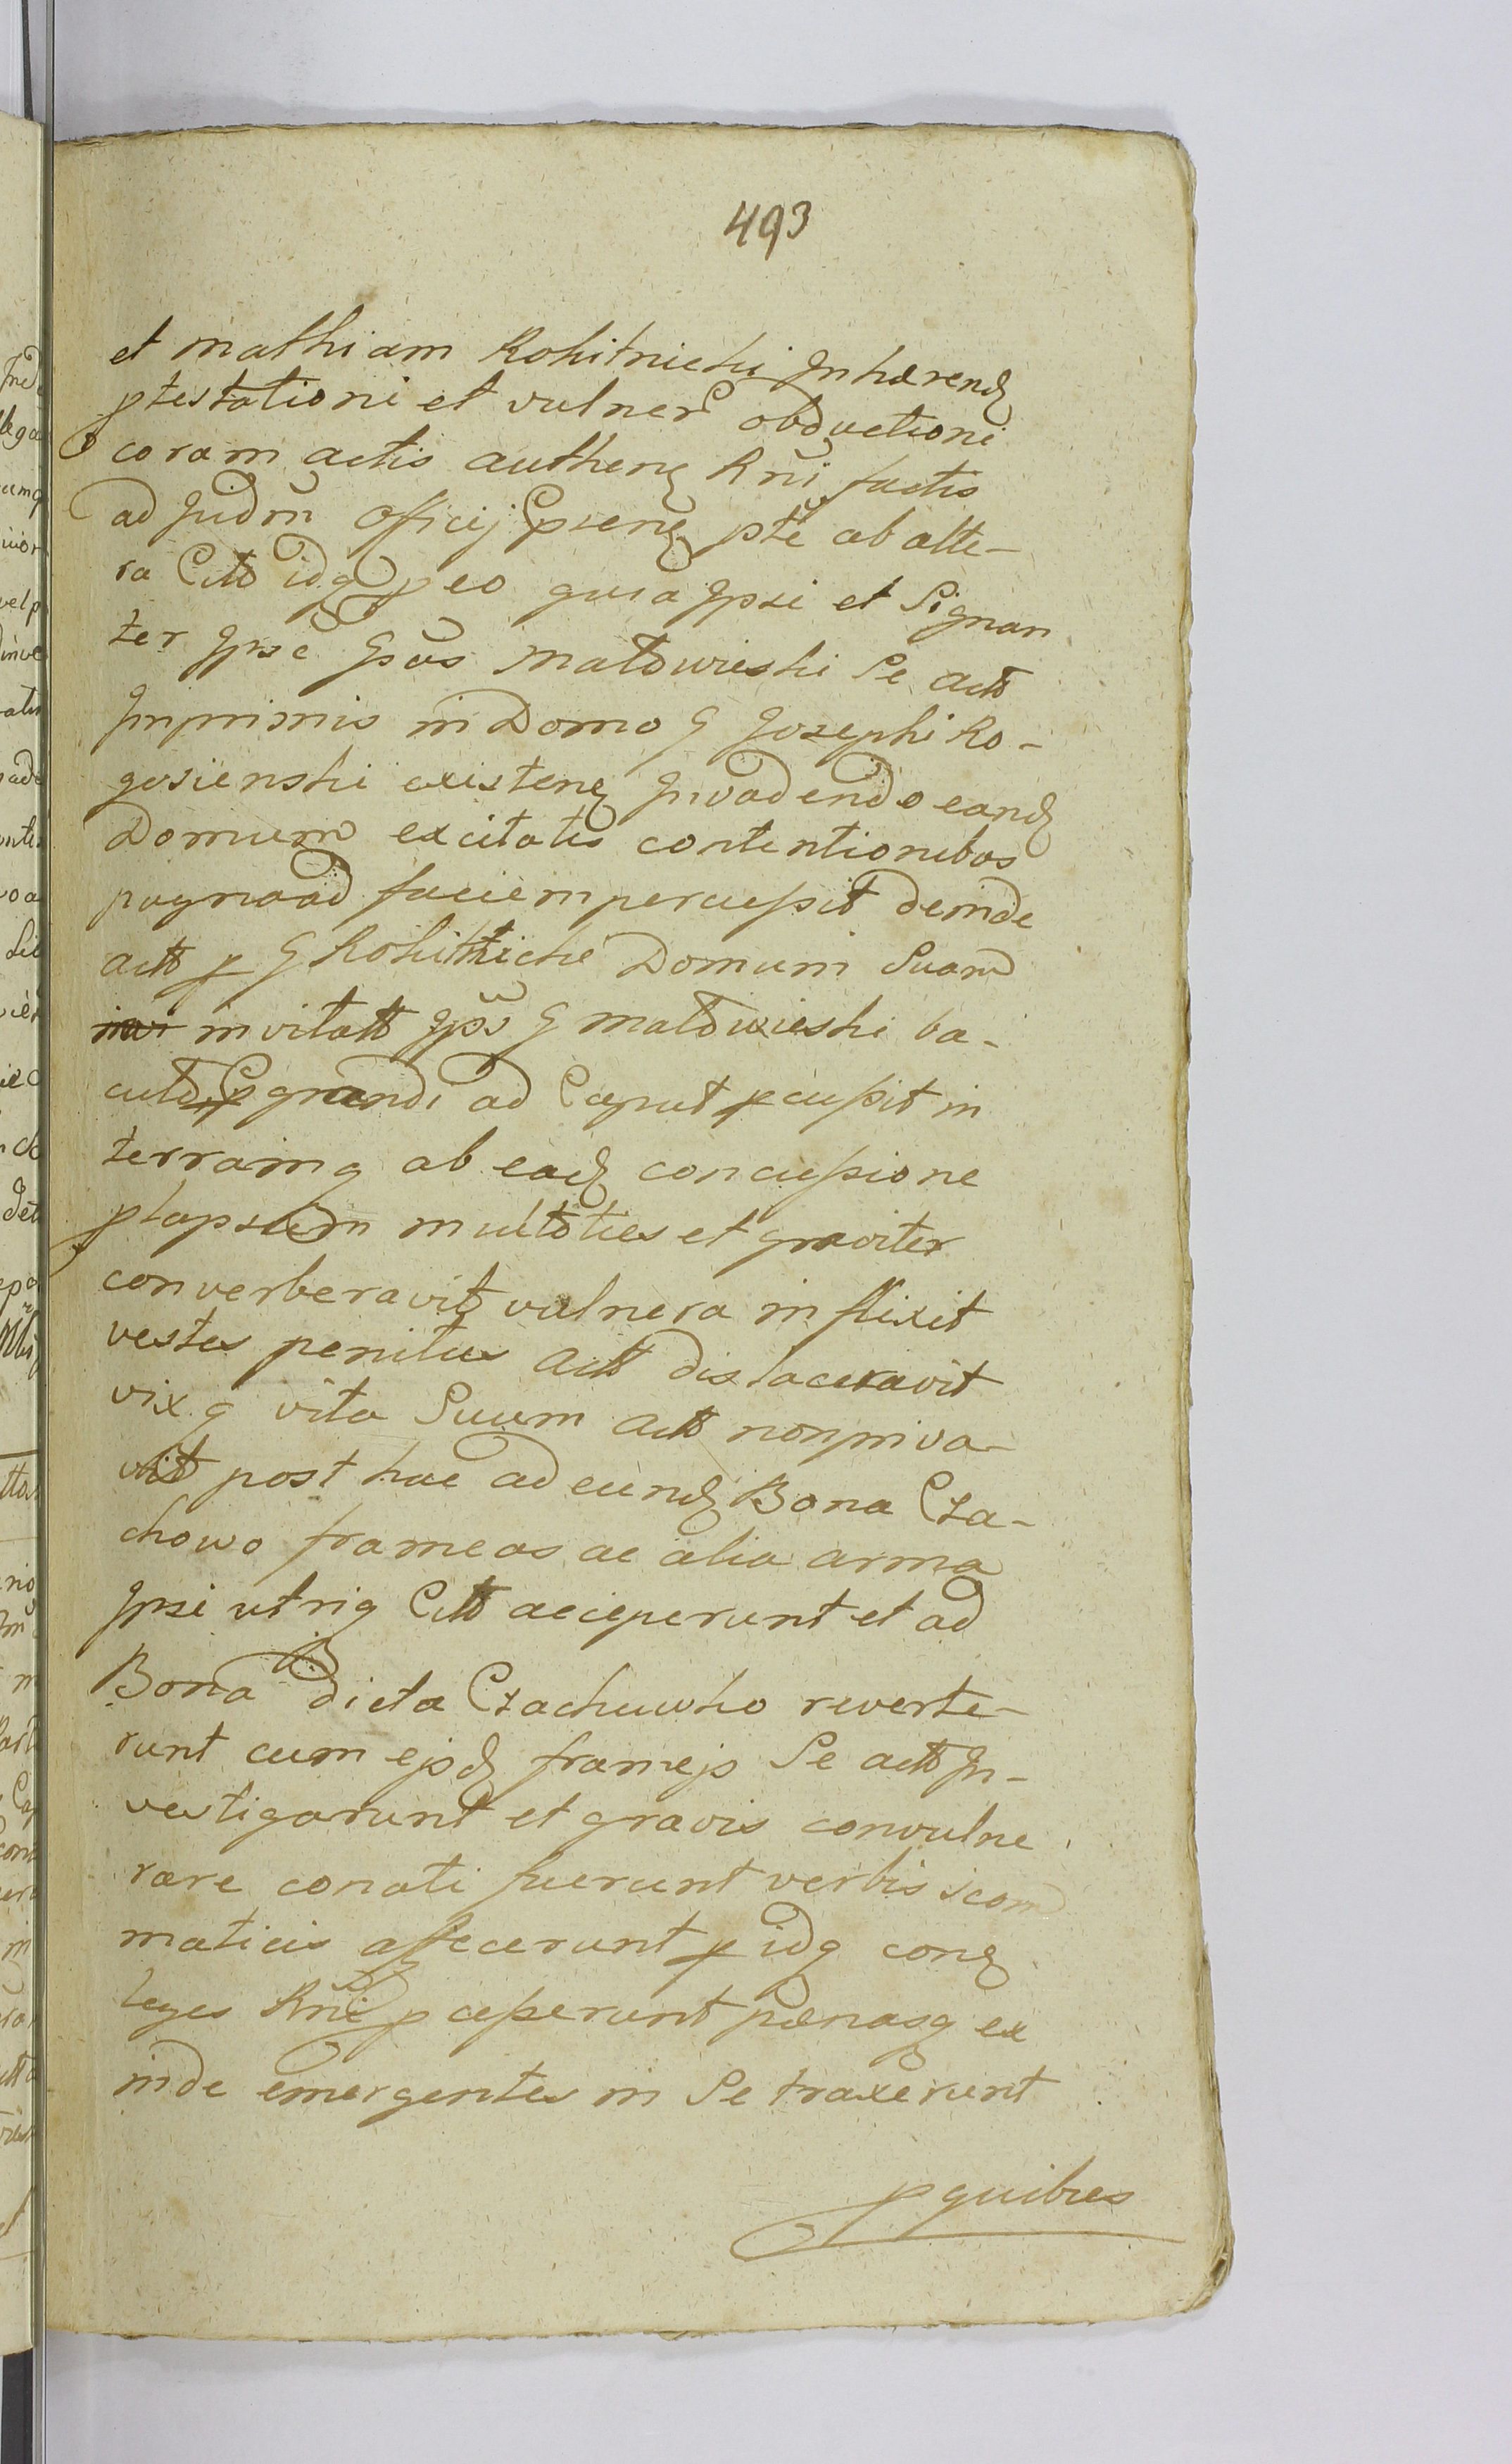 493
et Mathiam Rokitnicki Inhærend
ptestationi et vulner obductioni
coram actis authen Rni factis
ad Judm Officij Pptsenē pte ab alte-
ra Citt idq p eo quia Ipsi et Signan
ter Ipse Gsus Małowieski Se Actt
Inprimis in Domo G Josephi Ro-
gosienski existen Invadendo eand
Domum excitatis contentionibus
pugno ad faciem percussit deinde
actt p G Rokitnicki Domum Suam
invitatt Ips G Małowieski ba-
culo grandi ad Caput pcussit in
terramq ab ead concussione
plapsum multoties et graviter
converberavit vulnera inflixit
vestes penitus Actt dislaceravit
vixq vita Suum Actt non priva-
vit post hac ad eund Bona Cza-
chowo frameas ac alia arma
Ipsi utriq Citt acceperunt et ad
Bona dicta Czachuwko reverte-
runt cum ejsd framejs Se actt In-
vestigarunt et gravis convulne
rare conati fuerunt verbis scom
maticis affecerunt p idq con
leges Rni pcesserunt pænasq ex
inde emergentes in Se traxerunt
p quibus